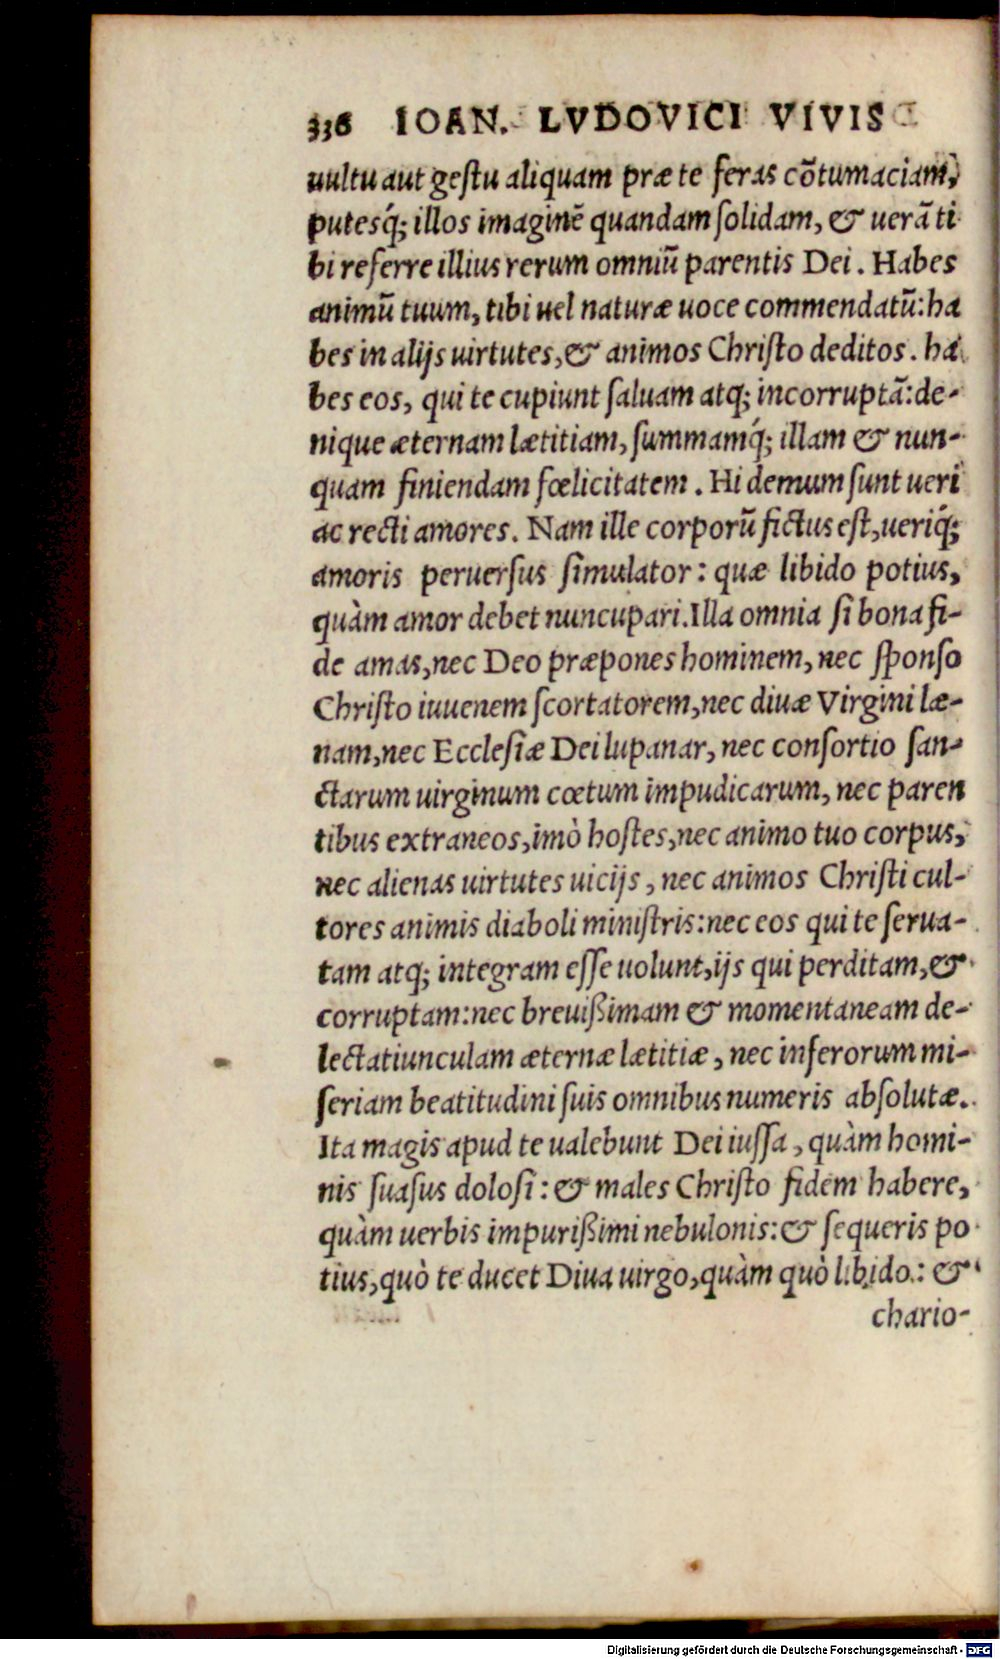 336 IOAN. LVDOVICI VIVIS
uultu aut geſtu aliquam præ te feras cõtumaciam,
putesq́; illos imaginẽ quandam ſolidam, & uerã ti
bi referre illius rerum omniũ parentis Dei. Habes
animũ tuum, tibi uel naturæ uoce commendatũ: ha
bes in alijs uirtutes, & animos Chriſto deditos. ha
bes eos, qui te cupiunt ſaluam atq; incorruptã: de-
nique æternam lætitiam, ſummamq́; illam & nun-
quam finiendam fœlicitatem. Hi demum ſunt ueri
ac recti amores. Nam ille corporũ fictus eſt, ueriq́;
amoris peruerſus ſimulator: quæ libido potius,
quàm amor debet nuncupari. Illa omnia ſi bona fi-
de amas, nec Deo præpones hominem, nec ſponſo
Chriſto iuuenem ſcortatorem, nec diuæ Virgini læ-
nam, nec Eccleſiæ Dei lupanar, nec conſortio ſan-
ctarum uirginum cœtum impudicarum, nec paren
tibus extraneos, imò hoſtes, nec animo tuo corpus,
nec alienas uirtutes uicijs, nec animos Chriſti cul-
tores animis diaboli miniſtris: nec eos qui te ſerua-
tam atq; integram eſſe uolunt, ijs qui perditam, &
corruptam: nec breuißimam & momentaneam de-
lectatiunculam æternæ lætitiæ, nec inferorum mi-
ſeriam beatitudini ſuis omnibus numeris abſolutæ.
Ita magis apud te ualebunt Dei iuſſa, quàm homi-
nis ſuaſus doloſi: & males Chriſto fidem habere,
quàm uerbis impurißimi nebulonis: & ſequeris po
tius, quò te ducet Diua uirgo, quàm quò libido.: &
chario-
Digitalisierung gefördert durch die Deutsche Forschungsgemeinschaft - DFG